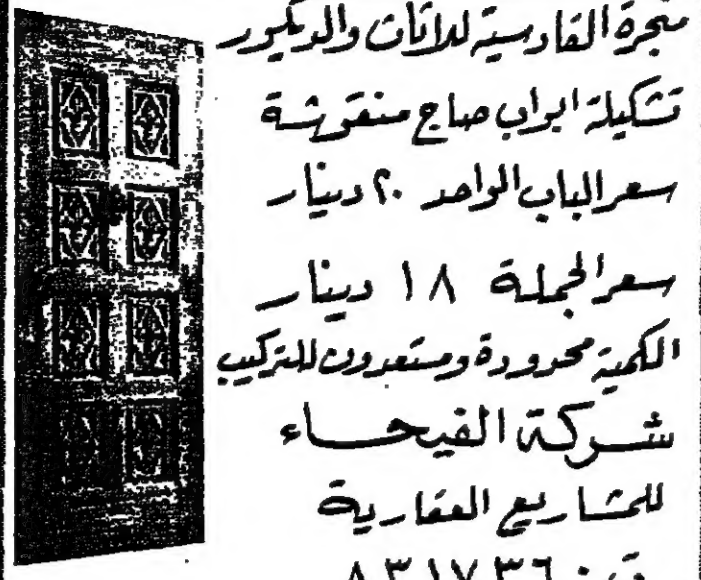 منجرة القادسية للاثاث والديكور
تشكيلة ابواب صاج منقوشة
سعر الباب الواحد ٢٠ دينار
سعر الجملة ١٨ دينار
الكمية محدودة ومستعدون للتركيب
شركة الفيحاء
للمشاريع العقارية
ت : ٨٣١٧٣٦